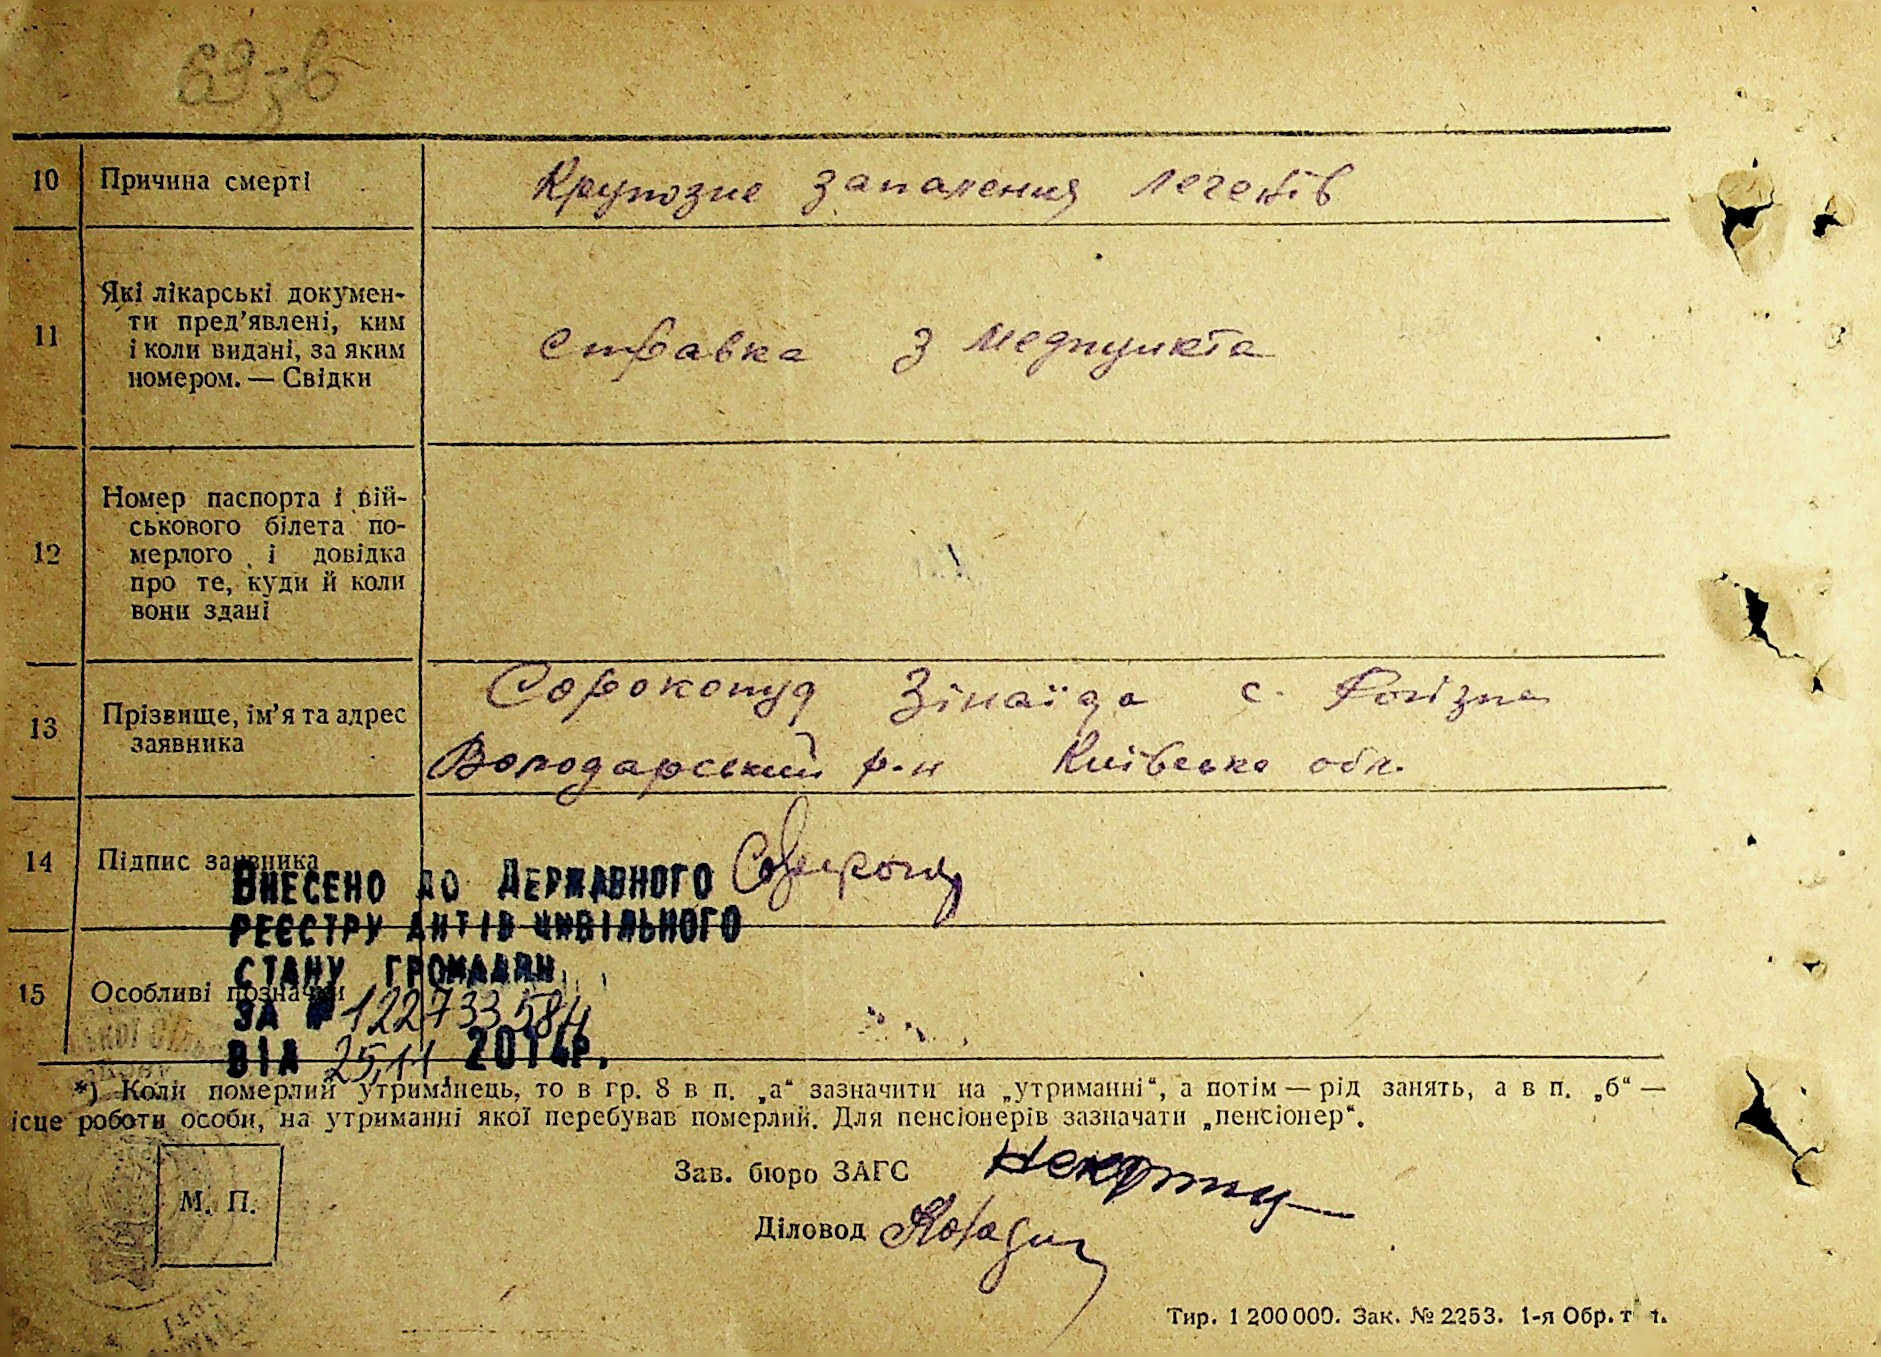 10 Причина смерті Крупозне запалення легенів
Які лікарські докумен-
ти пред'явлені, ким
11 і коли видані, за яким справка з медпункта
номером. — Свідки
Номер паспорта і вій-
ськового білета по-
12 мерлого і довідка
про те, куди й коли
вони здані
Сорокопуд Зінаїда с. Рогізна
13 Прізвище, ім'я та адрес
заявника
Володарський р-н Київська обл.
14 Підпис заявника
Внесено до Державного
реєстру актів цивільного
стану громадян
15 Особливі позначки
за № 122733584
від 25,11 2014р.
*) Коли померлий утриманець, то в гр. 8 в п. „а“ зазначити на „утриманні“, а потім — рід занять, а в п. „б“ —
ісце роботи особи, на утриманні якої перебував померлий. Для пенсіонерів зазначати „пенсіонер“.
Зав. бюро ЗАГС
М. П.
Діловод
Тир. 1 200 000. Зак. № 2253. 1-я Обр. т т.